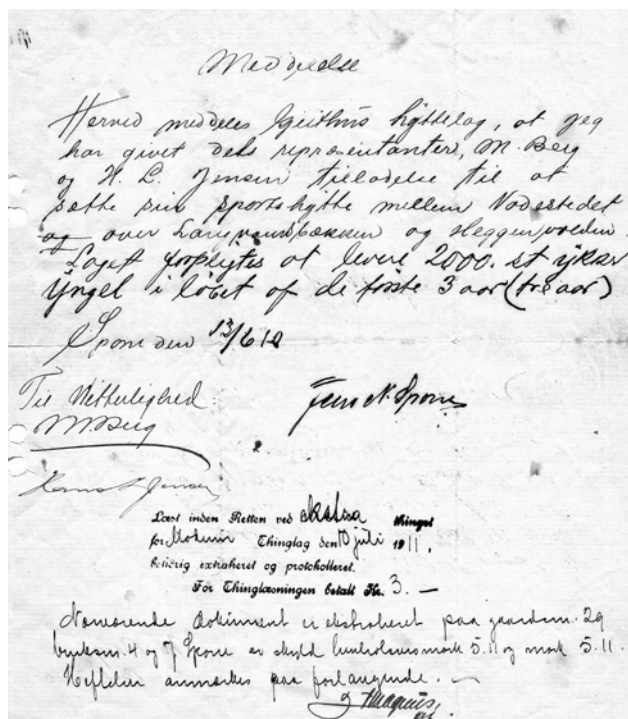 Meddelelse
Herved meddeles Geithus hyttelag, at jeg
har givet dets repræsentanter, M. Berg
og H. L. Jensen tilladelse til at
sætte sin sportshytte mellem Vadestedet
og over Langvandsbækken og
Laget forpligtes at levere 2000. st
yngel i löbet af de förste 3 aar (tre aar)
Spone den 13/6 10
Til Vitterlighed
M Berg
Jens N. Spone
Hans L Jensen
Læst inden Retten ved thinget
for Modum Thinglag den 10 juli 1911.
behörig extraheret og protokolleret.
For Thinglæsningen betalt Kr. 3. —
Nærværende dokument er ekstraheret paa gaardsn. 29
bruksn. 4 og 7 Spone av skyld henholdsvis mark 5.11 og mark 5.11.
Heftelser anmærkes paa forlangende. —
Magnus